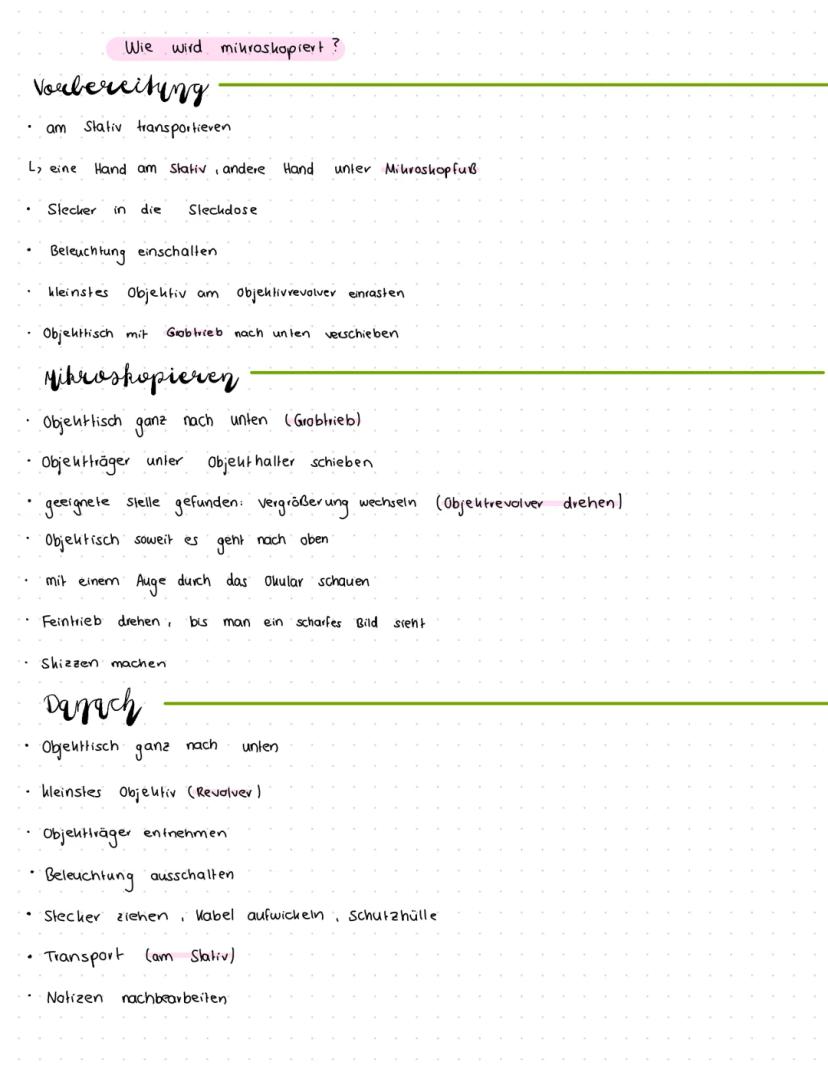 Wie wird mikroskopiert?
Vorbereitung
· am Stativ transportieren
↳ eine Hand am Stativ, andere Hand unter Mikroskopfuß
· Stecker in die Steckdose
· Beleuchtung einschalten
· kleinstes Objektiv am Objektivrevolver einrasten
· Objekttisch mit Grobtrieb nach unten verschieben
Mikroskopieren
· Objekttisch ganz nach unten (Grobtrieb)
· Objektträger unter Objekthalter schieben
· geeignete Stelle gefunden: Vergrößerung wechseln (Objektrevolver drehen)
· Objektisch soweit es geht nach oben
· mit einem Auge durch das Okular schauen
· Feintrieb drehen, bis man ein scharfes Bild sieht
· Skizzen machen
Danach
· Objekttisch ganz nach unten
· kleinstes Objektiv (Revolver)
· Objektträger entnehmen
· Beleuchtung ausschalten
· Stecker ziehen, Kabel aufwickeln, Schutzhülle
· Transport (am Stativ)
· Notizen nachbearbeiten